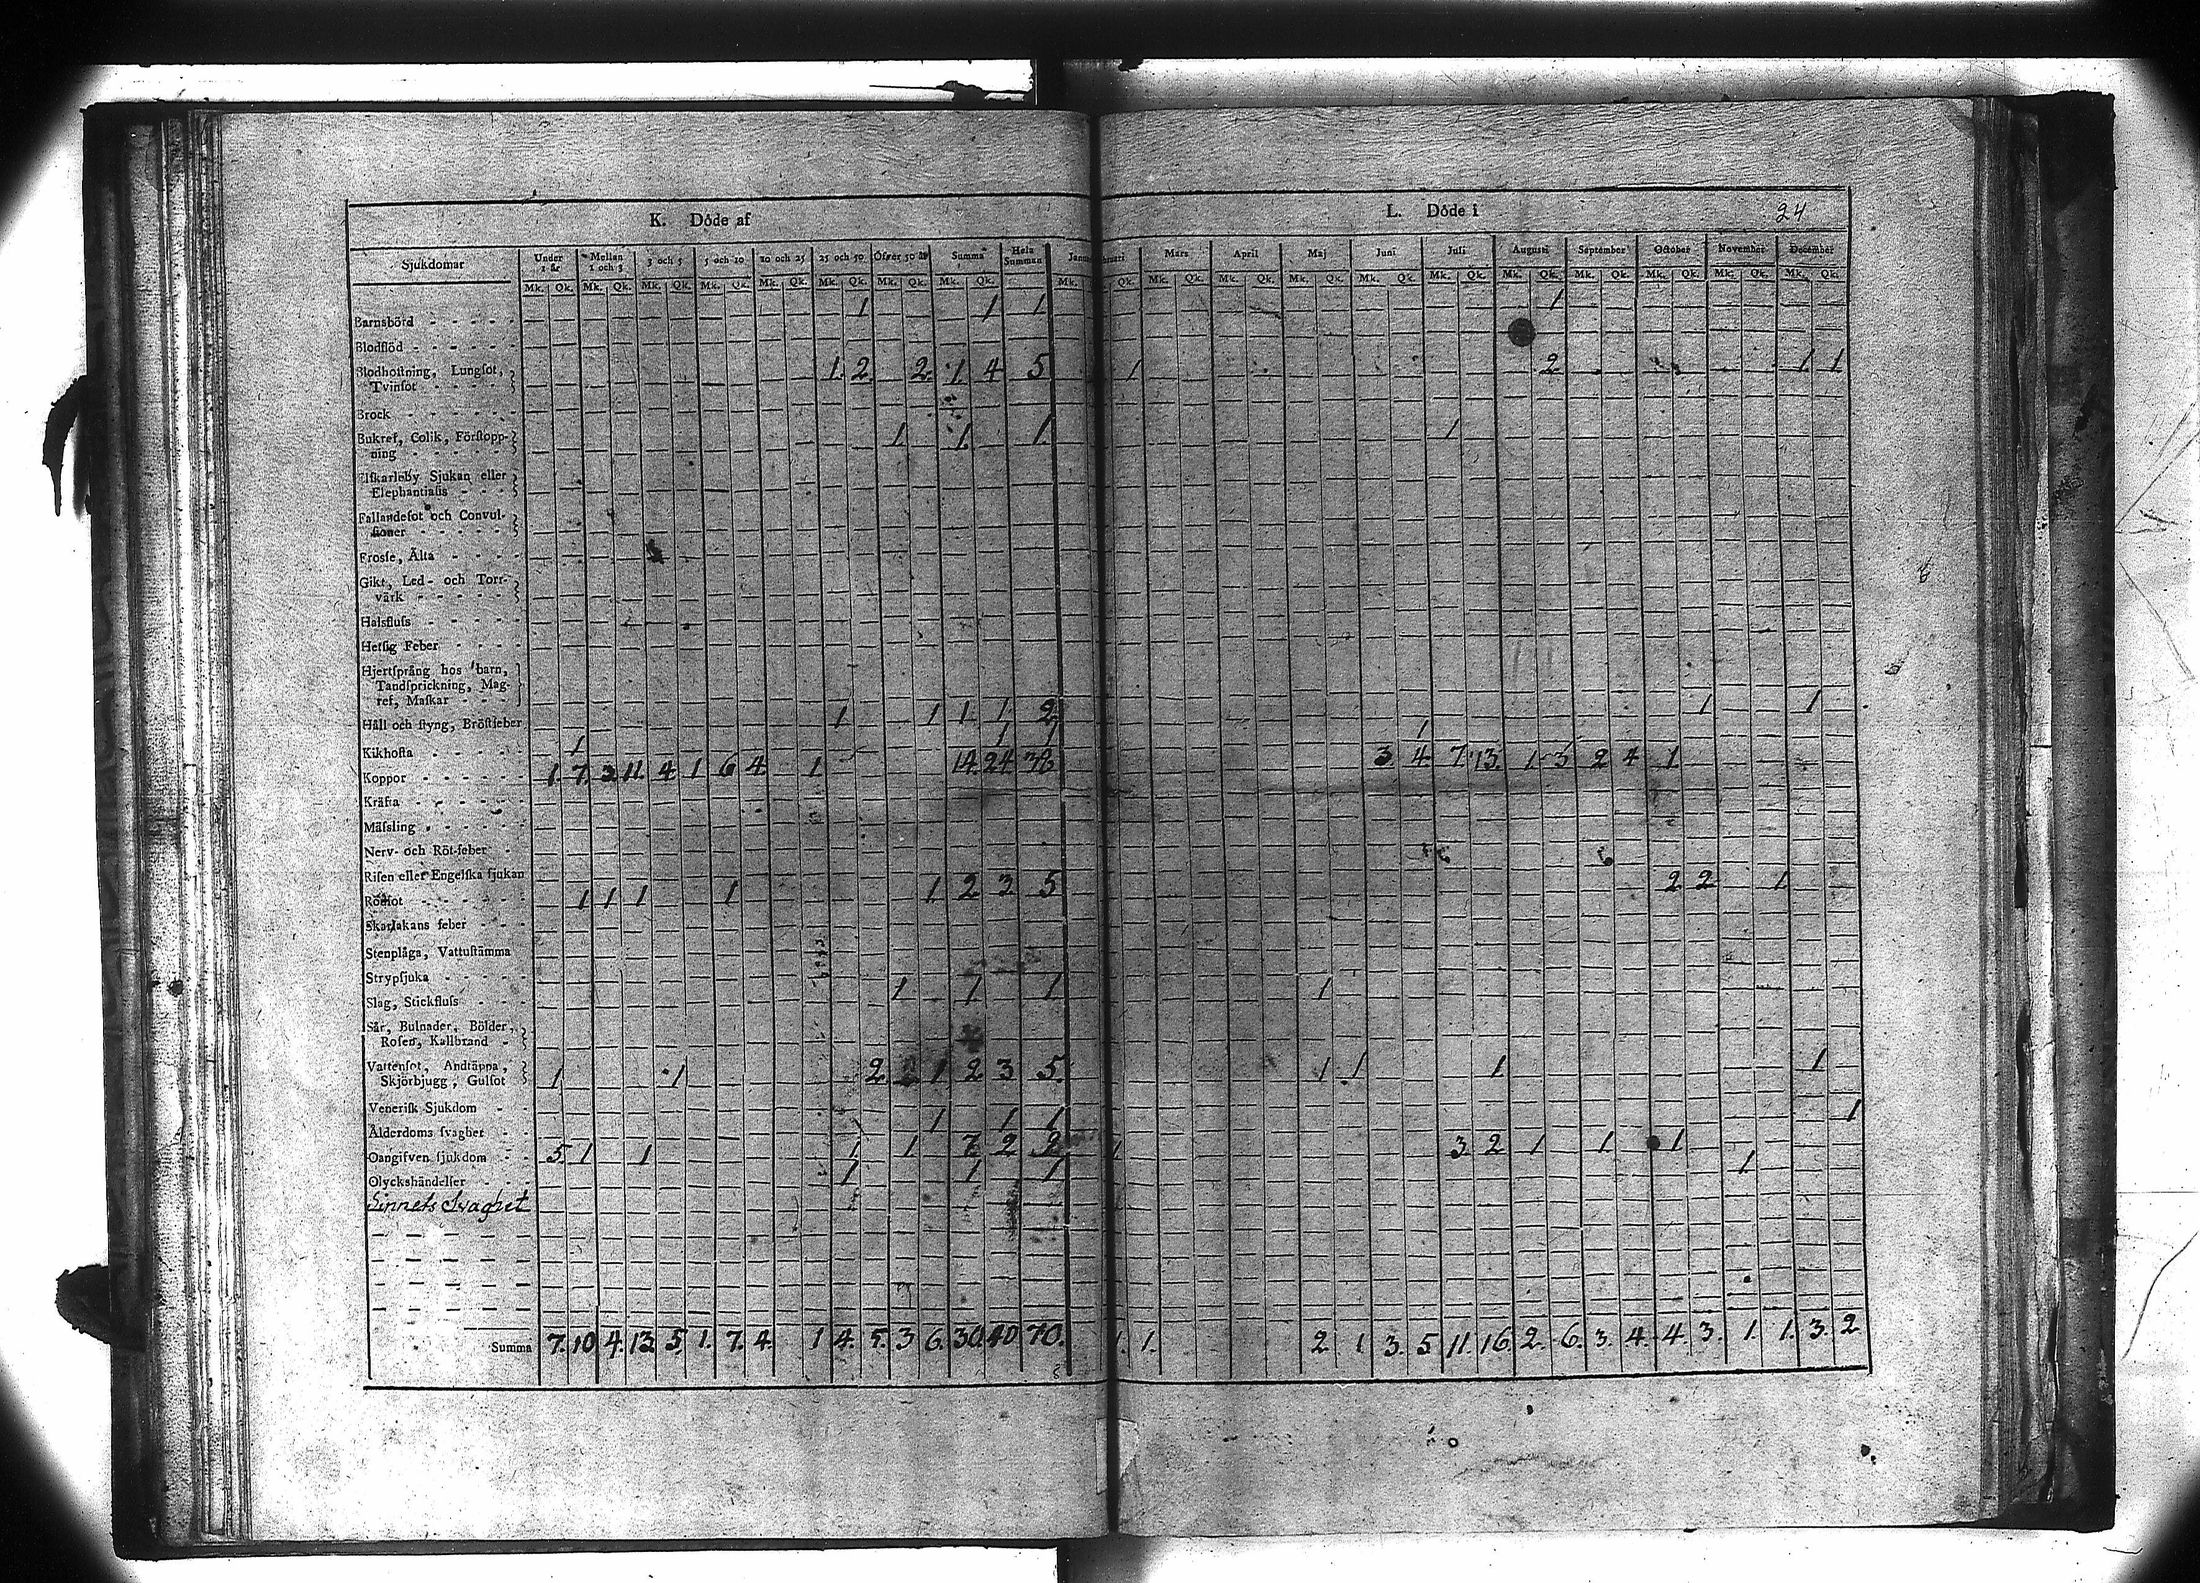 K. Döde af
L. Döde i 24
Sjukdomar Under 1 år Mellan 1 och 3 3 och 5 5 och 10 10 och 25 25 och 50 Öfver 50 år Summa Hela Summan Mars April Maj Juni Juli Augusti September October November December
Mk. Qk. Mk. Qk. Mk. Qk. Mk. Qk. Mk. Qk. Mk. Qk. Mk. Qk. Mk. Qk. Mk. Qk. Mk. Qk. Mk. Qk. Mk. Qk. Mk. Qk. Mk. Qk. Mk. Qk. Mk. Qk. Mk. Qk. Mk. Qk. Mk. Qk.
Barnsbörd 1 1 1 1
Blodflöd
Blodhostning, Lungsot, Tvinsot 1. 2. 2. 1. 4 5 1 2 1 1
Brock
Bukref, Colik, Förstoppning 1 1. 1. 1
Elfkarleby Sjukan eller Elephantiasis
Fallandesot och Convulsioner
Frossa, Älta
Gikt, Led- och Torrvärk
Halsfluss
Hetsig Feber
Hjertsprång hos barn, Tandsprickning, Magref, Maskar
Håll och styng, Bröstfeber 1 1 1. 1. 2 1 1
Kikhosta 1 1 1 1
Koppor 1. 7. 3 11. 4 1 6 4. 1. 14. 24 38 3 4 7. 13. 1 3 2 4 1.
Kräfta
Mässling
Nerv- och Röt-feber
Risen eller Engelska sjukan
Rödsot 1 1 1 1 1 2 3 5 2 2 1
Skarlakans feber
Stenplåga, Vattustämma
Strypsjuka
Slag, Stickfluss 1 1 1 1
Sår, Bulnader, Bölder, Rosen, Kallbrand
Vattensot, Andtäppa, Skjörbjugg, Gulsot 1 1 2. 1 2 3 5. 1 1 1 1
Venerisk Sjukdom
Ålderdoms svaghet 1 1 1 1
Oangifven sjukdom 5. 1 1 1 1 7. 2 1 3. 2 1 1 1
Olyckshändelser 1 1 1 1
Sinnets Svaghet
Summa 7. 10 4. 13. 5. 1. 7. 4. 1 4. 5. 3 6. 30. 40 70. 1. 1. 2. 1 3. 5 11. 16. 2. 6. 3. 4. 4. 3. 1. 1. 3. 2